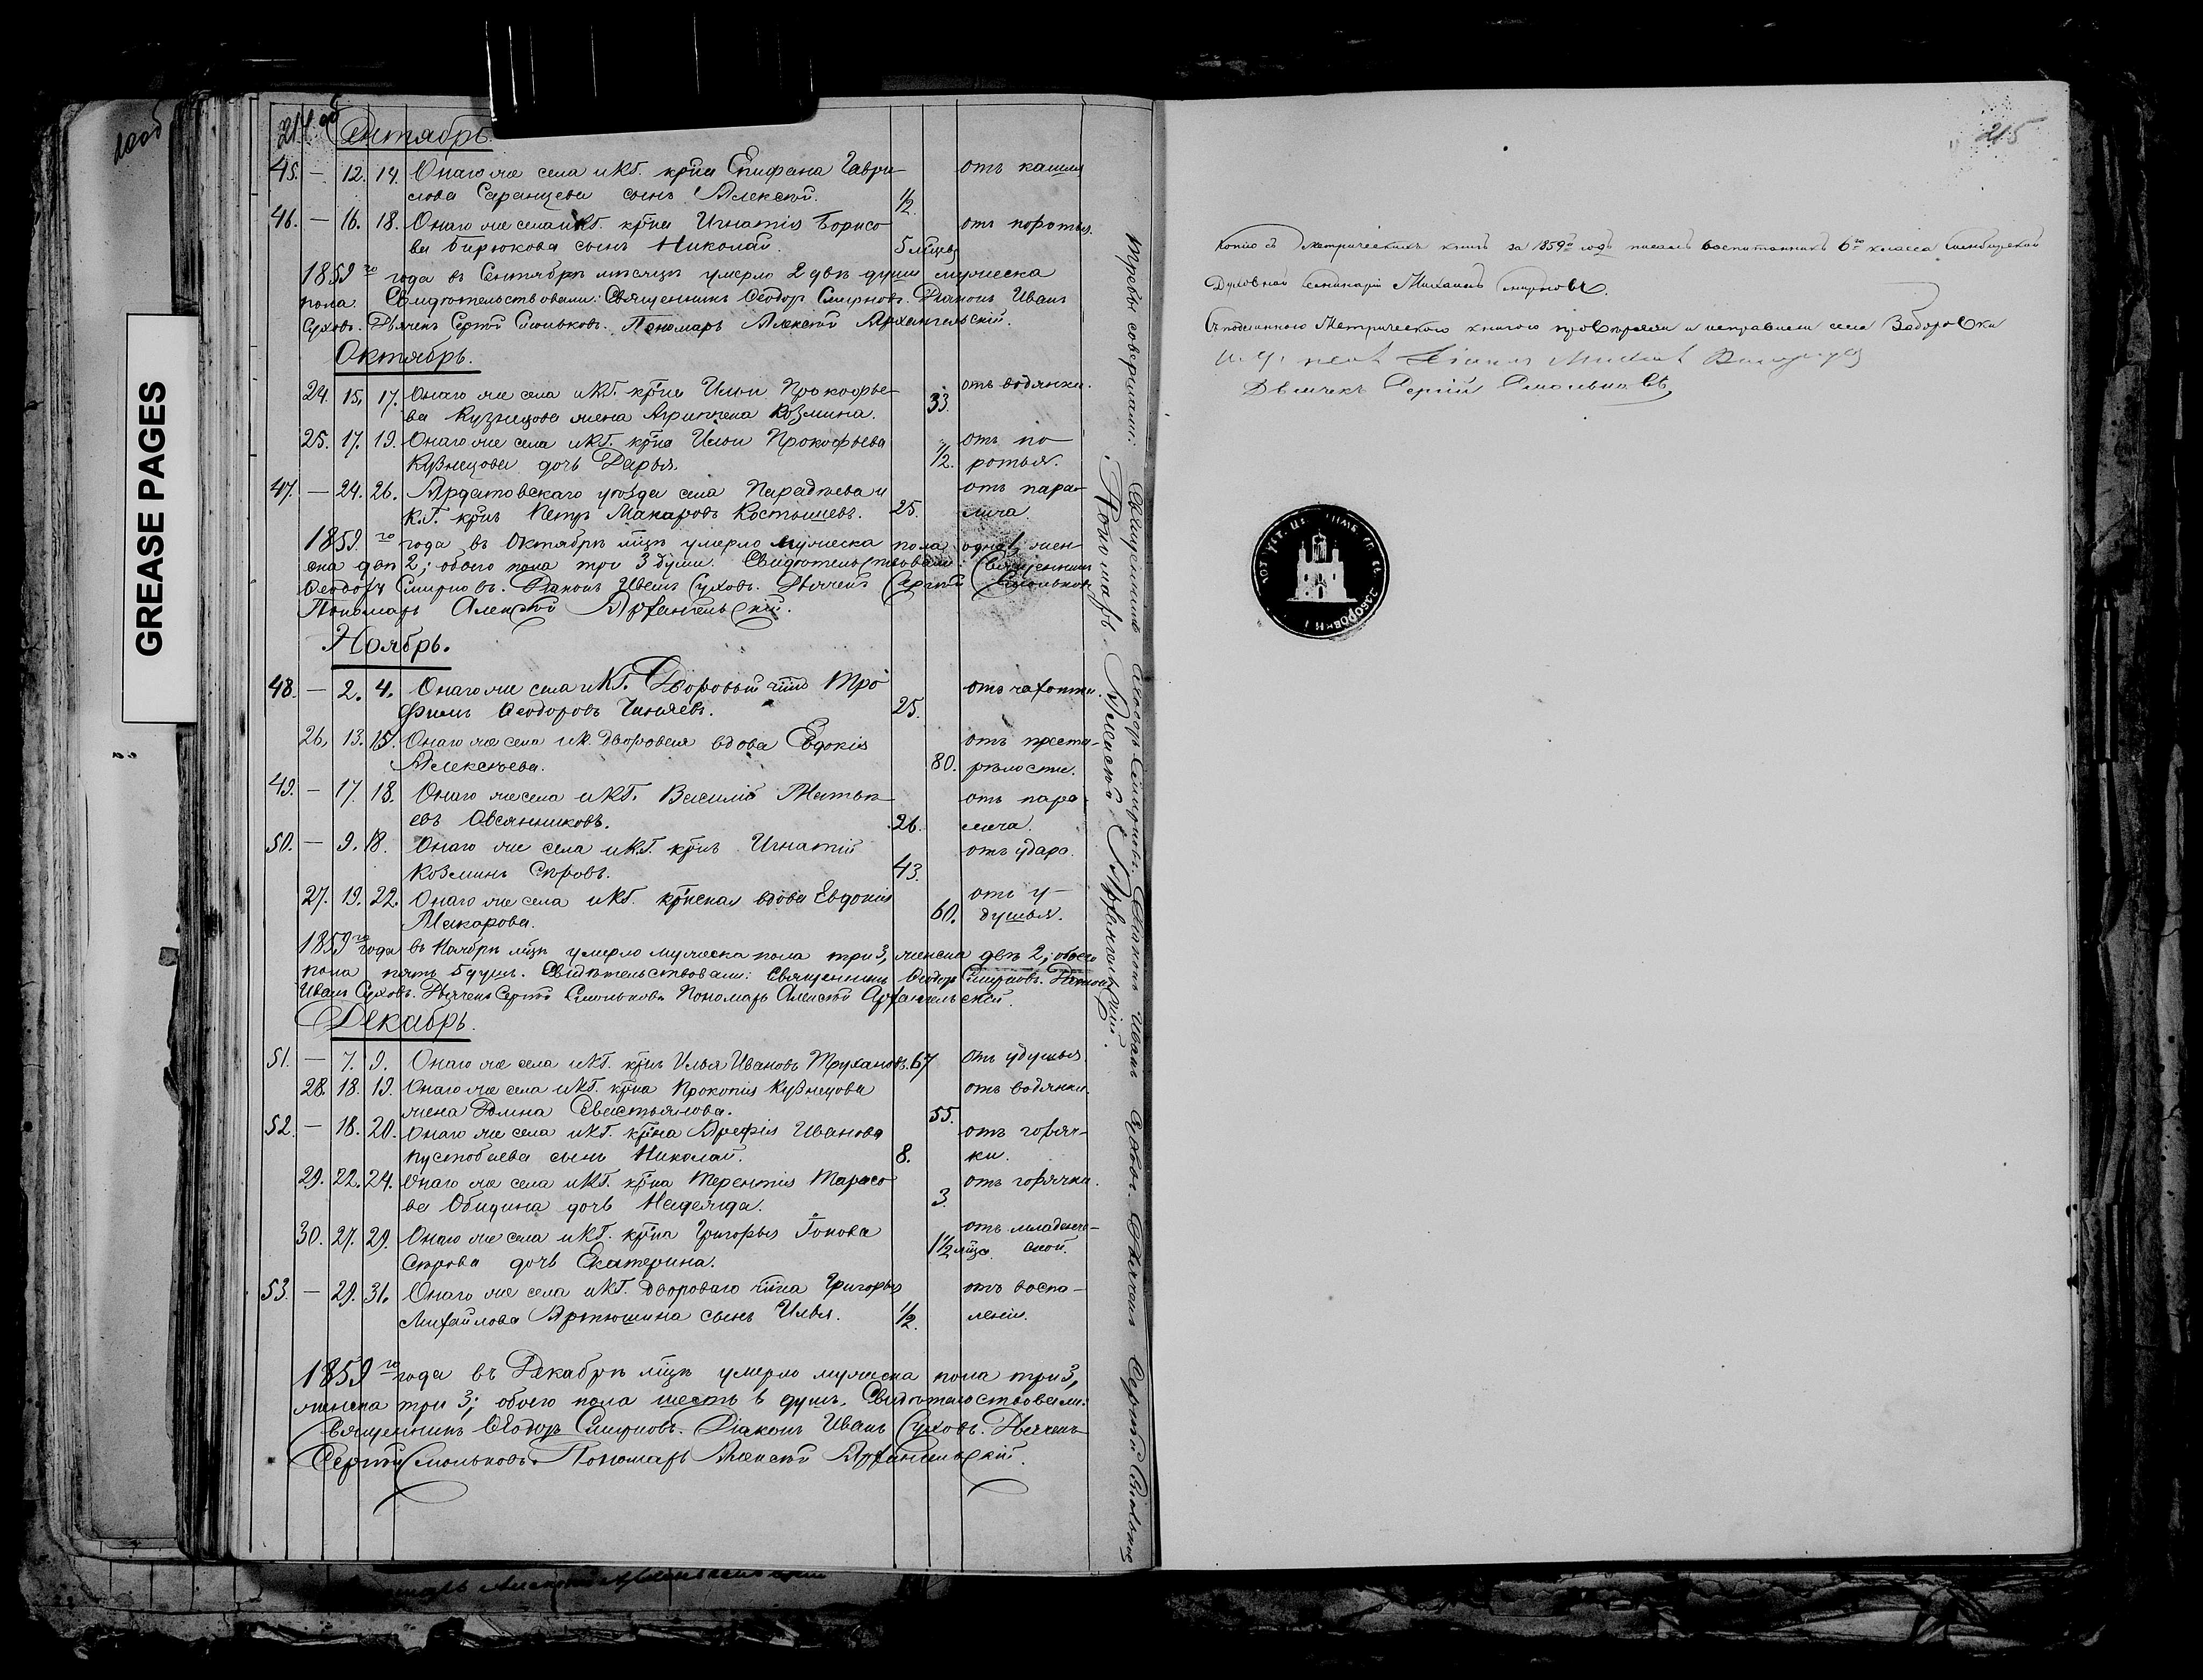 GREASE PAGES
214 об
Сентябрь.
45. — 12. 14. Онаго же села и К.Г. кр̃на Епифана Гаври-
лова Саранцева сынъ Алексѣй. 1/2 отъ кашля
46. — 16. 18. Онаго же села и К.Г. кр̃на Игнатія Борисо-
ва Бирюкова сынъ Николай. 5 мѣцевъ отъ поротья.
1859го года въ Сентябрѣ мѣсяцѣ умерло 2 двѣ души мужеска
пола. Свидѣтельствовали: Священникъ Ѳеодоръ Смирновъ. Діаконъ Иванъ
Суховъ. Дьячекъ Сергѣй Смольковъ. Пономарь Алексѣй Архангельскій.
Октябрь.
24. 15. 17. Онаго же села и К.Г. кр̃на Ильи Прокофье-
ва Кузнецова жена Агрипена Козмина. 33. отъ водянки.
25. 17. 19. Онаго же села и К.Г. кр̃на Ильи Прокофьева отъ по-
Кузнецова дочь Дарья. 1/2. ротья.
47. — 24. 26. Ардатовскаго уѣзда села Парадѣева и отъ пара-
К.Г. кр̃нъ Петръ Макаровъ Костышевъ. 25. лича.
1859го года въ Октябрѣ мц̃ѣ умерло мужеска пола одна 1, жен-
ска двѣ 2; обоего пола три 3 души. Свидѣтельствовали: Священникъ
Ѳеодоръ Смирновъ. Діаконъ Иванъ Суховъ. Дьячекъ Сергѣй Смольковъ
Пономарь Алексѣй Архангельскій.
Ноябрь.
48. — 2. 4. Онаго же села и К.Г. Дворовый Тро- отъ чахотки.
фимъ Ѳеодоровъ 25.
26. 13. 15. Онаго же села и К. дворовая вдова Евдокія отъ преста-
Алексѣева. 80. рѣлости.
49. — 17. 18. Онаго же села и К.Г. Василій Матвѣ- отъ пара-
евъ Овсянниковъ. 26. лича.
50. — 9. 18. Онаго же села и К.Г. кр̃нъ Игнатій отъ удара.
Козминъ Сѣровъ. 43.
27. 19. 22. Онаго же села и К.Г. кр̃нская вдова Евдокія отъ у-
Макарова. 60. душья.
1859го года въ Ноябрѣ мц̃ѣ умерло мужеска пола три 3, женска двѣ 2; обоего
пола пять 5 душъ. Свидѣтельствовали: Священникъ Ѳеодоръ Смирновъ. Діаконъ
Иванъ Суховъ. Дьячекъ Сергѣй Смольковъ Пономарь Алексѣй Архангельскій.
Декабрь.
51. — 7. 9. Онаго же села и К.Г. кр̃нъ Илья Ивановъ Трухановъ. 67 отъ удушья
28. 18. 19. Онаго же села и К.Г. кр̃на Прокопія Кузнецова отъ водянки.
жена Домна Севастьянова. 55.
52. — 18. 20. Онаго же села и К.Г. кр̃на Арефія Иванова отъ горяч-
Пустобаева сынъ Николай. 8. ки.
29. 22. 24. Онаго же села и К.Г. кр̃на Терентія Тарасо- отъ горячки.
ва Обидина дочь Надежда. 3.
30. 27. 29. Онаго же села и К.Г. кр̃на Григорья отъ младенче-
Сѣрова дочь Екатерина. 1 1/2 мц̃а. ской.
53. — 29. 31. Онаго же села и К.Г. дворового Григорья отъ воспа-
Михайлова Артюшина сынъ Илья. 1/2. ленія.
1859го года въ Декабрѣ мц̃ѣ умерло мужеска пола три 3,
женска три 3; обоего пола шесть 6 душъ. Свидѣтельствовали:
Священникъ Ѳеодоръ Смирновъ. Діаконъ Иванъ Суховъ. Дьячекъ
Сергѣй Смольковъ. Пономарь Алексѣй Архангельскій.
Требы совершали: Священникъ Ѳеодоръ Смирновъ. Діаконъ Иванъ Суховъ. Дьячекъ Сергѣй Смольковъ
Пономарь Алексѣй Архангельскій.
215
Копію съ Метрическихъ книгъ за 1859й годъ писалъ воспитанникъ 6го класса Симбирской
Духовной Семинаріи Михаилъ Смирновъ.
Съ подлинною Метрическою книгою провѣряли и исправляли села Заборовки
Дьячекъ Сергій Смольковъ